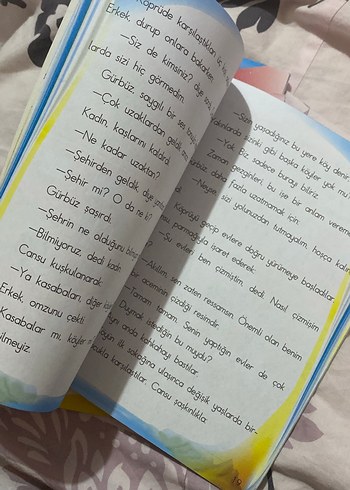 Köprüde karşılaştıkları üç
Erkek, durup onlara bakarken,
—Siz de kimsiniz? diye
larda sizi hiç görmedim.
Gürbüz, saygılı bir ses
—Çok uzaklardan geldik,
Kadın, kaşlarını kaldırdı
—Ne kadar uzaktan?
—Şehirden geldik, diye
—Şehir mi? O da ne ki?
Gürbüz şaşırdı.
—Şehrin ne olduğunu
—Bilmiyoruz, dedi kadın.
Cansu kuşkulanarak
—Ya kasabaları, diğer
Erkek omzunu çekti.
Kasabalar mı, köyler
ilmeyiz.
yaşadığınız bu yere köy denir.
sizinki gibi başka köyler yok mu?
—Yok. Biz sadece burayı biliriz.
Zaman gezginleri, bu işe bir anlam veremediler.
daha fazla uzatmamak için,
—Neyse, sizi yolunuzdan tutmayalım, hoşça kalın,
Köprüyü geçip evlere doğru yürümeye başladılar.
parmağıyla işaret ederek:
—Şu evleri ben çizmiştim, dedi. Nasıl çizmişim
—Ablam sen zaten ressamsın. Önemli olan benim
bir aceminin çizdiği resimdir.
—Tamam, tamam. Senin yaptığın evler de çok
Duymak istediğin bu muydu?
aynı anda kahkahayı bastılar.
köyün ilk sokağına ulaşınca değişik yaşlarda bir-
çocukla karşılaştılar. Cansu şaşkınlıkla:
19